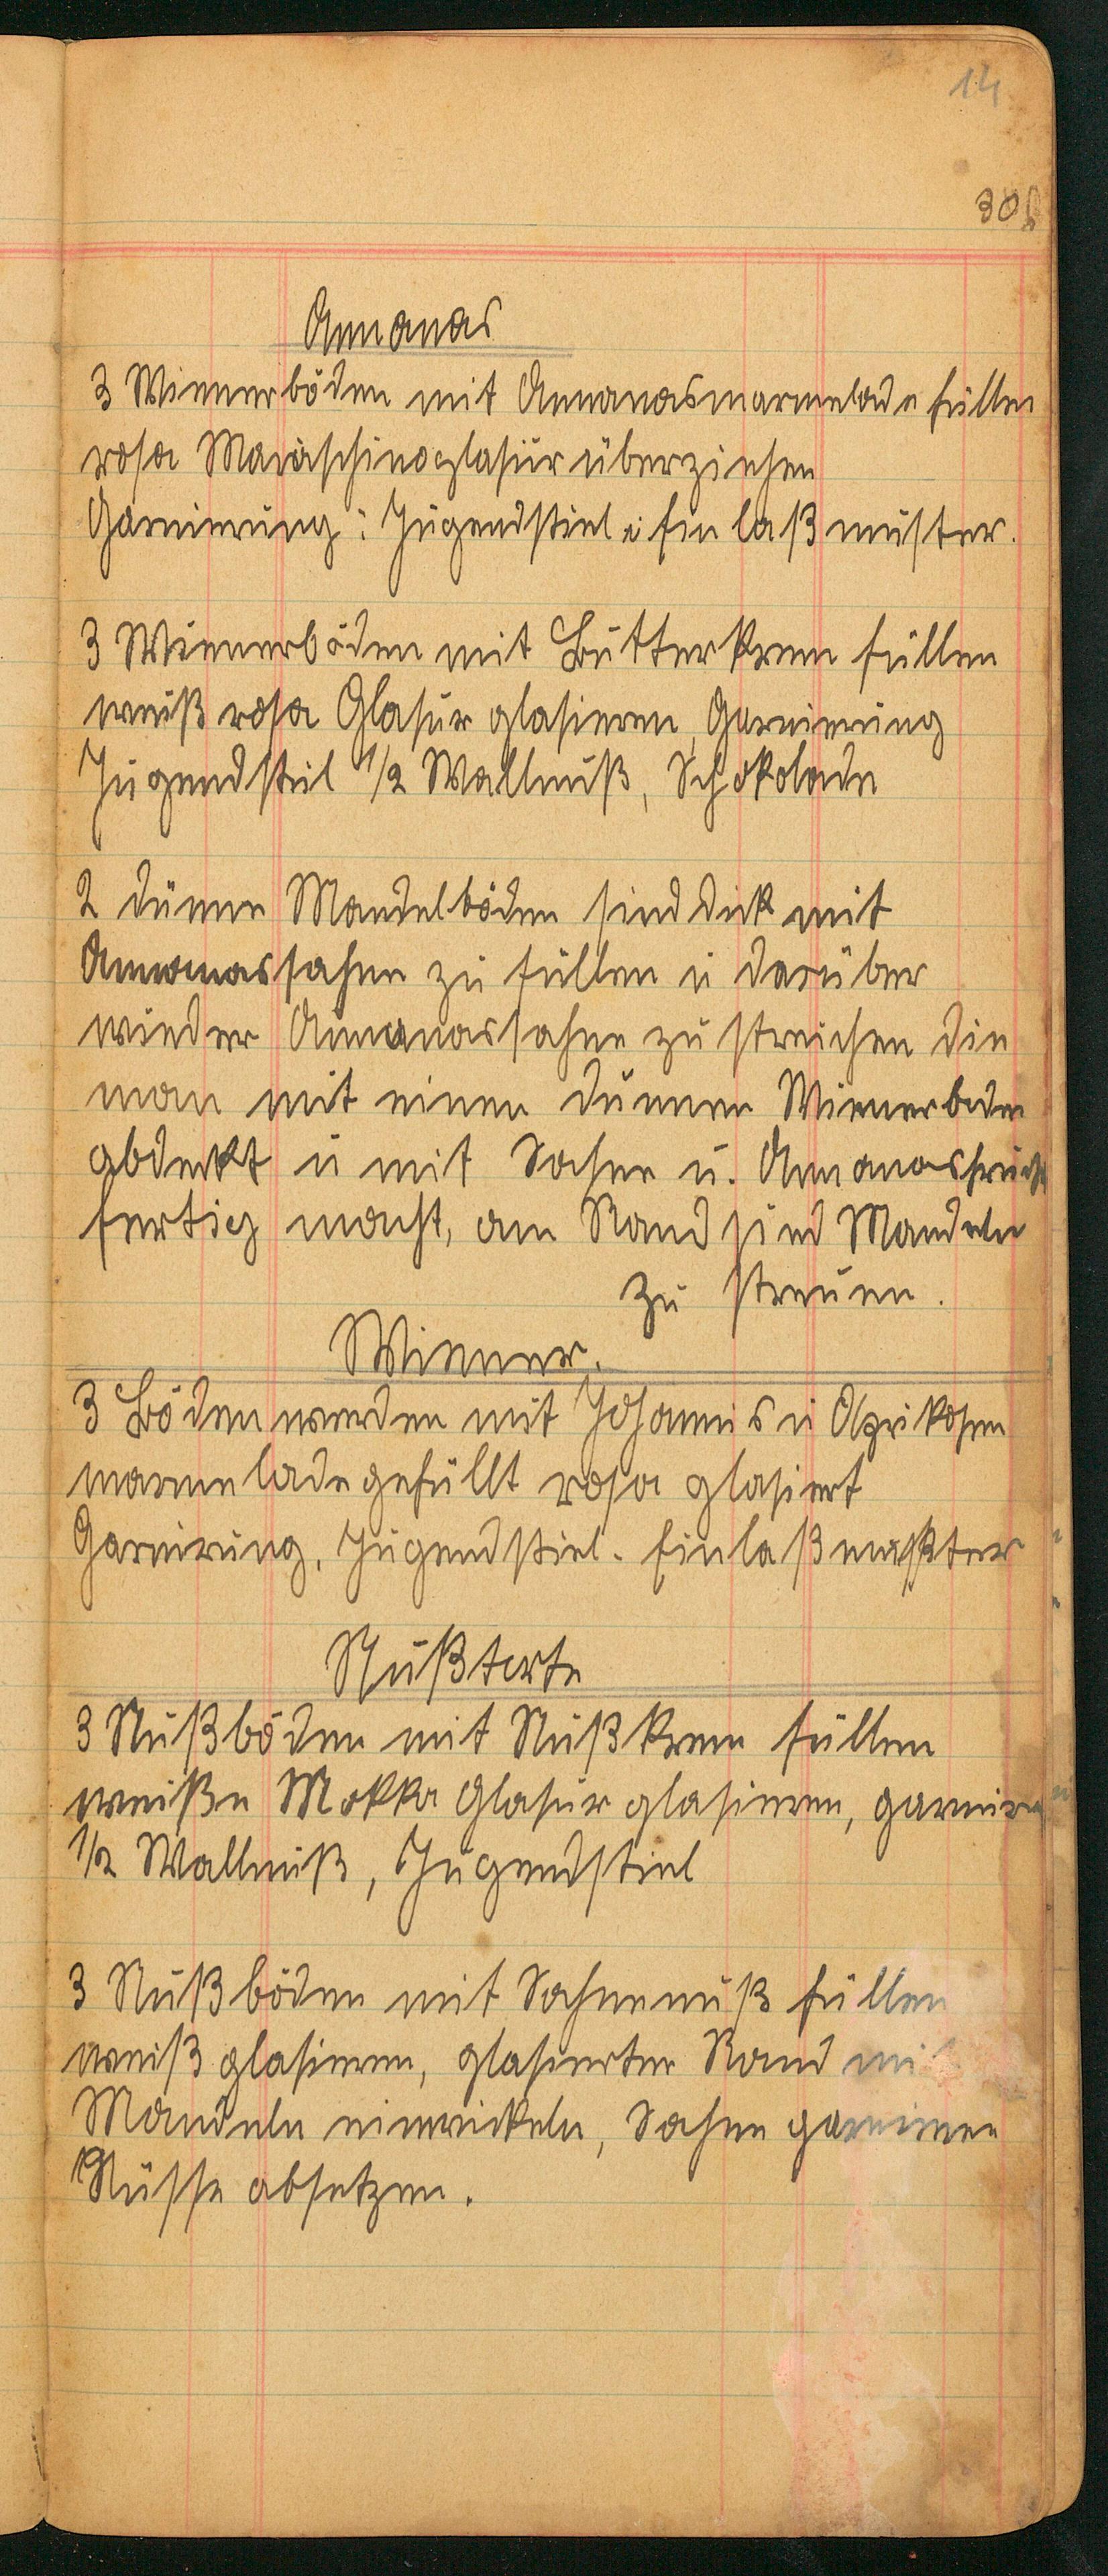 14
308
Annanas
3 Wienerböden mit Annanasmarmelade füllen
rosa Maraschinoglasur überziehen
Garnierung: Jugendstiel u Einlaßmuster.
3 Wienerböden mit Butterkrem füllen
weiß rosa Glasur glasieren, Garnierung
Jugendstiel 1/2 Wallnuß, Schokolade
2 dünne Mandelböden sind dick mit
Annanassahne zu füllen u darüber
wieder Annanassahne zu streichen die
man mit einen dünnen Wienerboden
abdeckt u mit Sahne u. Annanasfrücht
fertig macht, am Rand sind Mandeln
zu streuen.
Wiener.
3 Böden werden mit Johannis u Aprikosen
marmelade gefüllt rosa glasiert
Garnirung, Jugendstiel. Einlaßmuster
Nußtorte
3 Nußböden mit Nußkrem füllen
weiße Mokka Glasur glasieren, garnieren
1/2 Wallnuß, Jugendstiel
3 Nußböden mit Sahnenuß füllen
weiß glasieren, glasierter Rand mit
Mandeln einwickeln, Sahne garnieren
Nüsse absetzen.